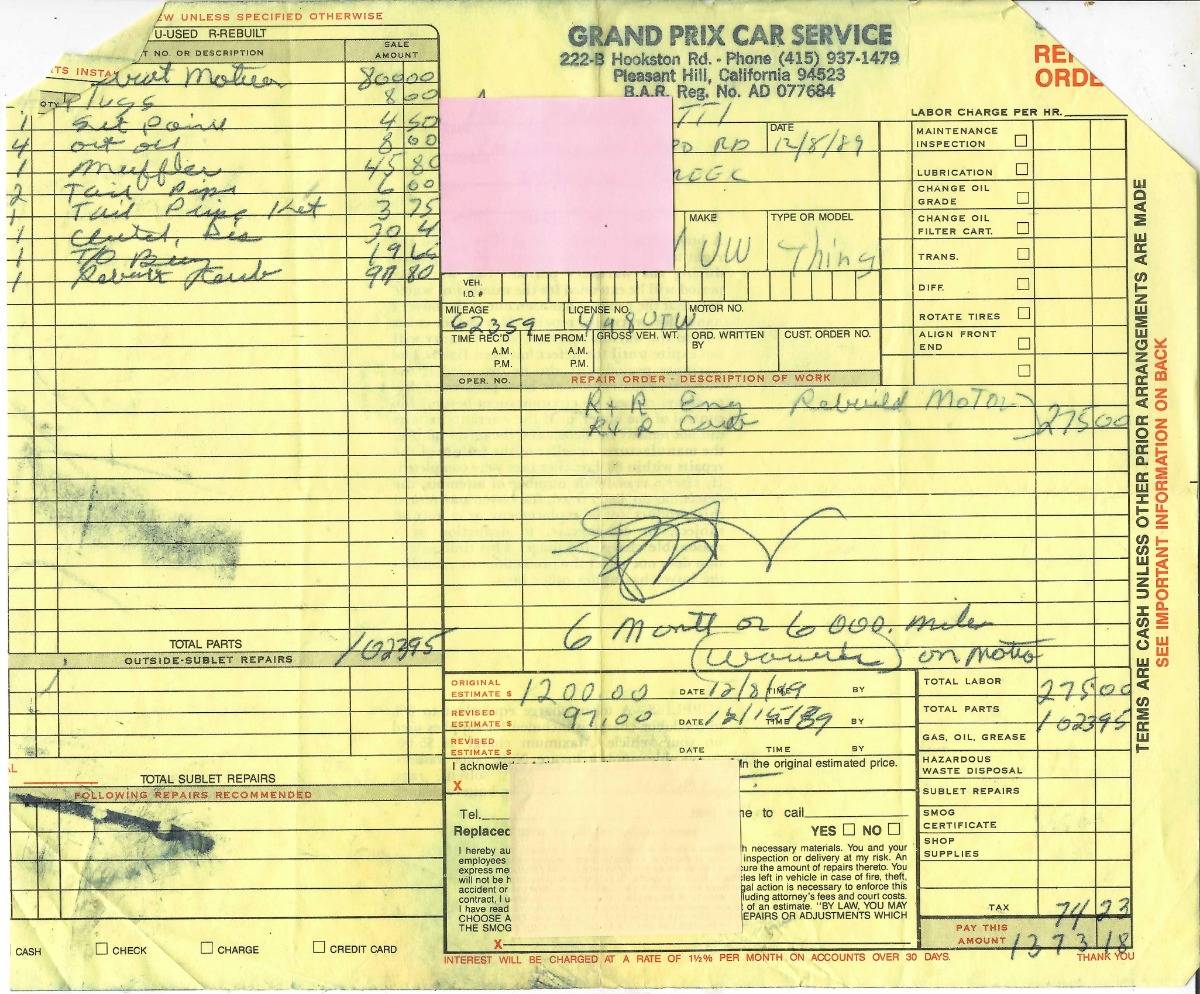 EW UNLESS SPECIFIED OTHERWISE
U-USED R-REBUILT
T NO. OR DESCRIPTION
SALE AMOUNT
TS INSTA
QTY
Moter 80000
Plugs 8 00
1 Set Point 4 50
4 8 00
1 Muffler 45 80
2 Tail Pips 6 00
1 Tail Pipe Ket 3 75
1 Clutch Dis 30 4
1 T/O 19 6
1 Rebuit Karb 97 80
TOTAL PARTS 102395
OUTSIDE-SUBLET REPAIRS
TOTAL SUBLET REPAIRS
FOLLOWING REPAIRS RECOMMENDED
CASH CHECK CHARGE CREDIT CARD
GRAND PRIX CAR SERVICE
222-B Hookston Rd. - Phone (415) 937-1479
Pleasant Hill, California 94523
B.A.R. Reg. No. AD 077684
REP
ORDE
TTI
RD
REEC
DATE
12/8/89
MAKE
VW
TYPE OR MODEL
Thing
VEH. I.D. #
MILEAGE
62359
LICENSE NO.
498UTW
MOTOR NO.
TIME REC'D A.M. P.M.
TIME PROM. A.M. P.M.
GROSS VEH. WT.
ORD. WRITTEN BY
CUST. ORDER NO.
LABOR CHARGE PER HR.
MAINTENANCE INSPECTION
LUBRICATION
CHANGE OIL GRADE
CHANGE OIL FILTER CART.
TRANS.
DIFF.
ROTATE TIRES
ALIGN FRONT END
OPER. NO.
REPAIR ORDER - DESCRIPTION OF WORK
R+R Eng Rebuild Motor
R+R Carb
27500
6 Month or 6000. mile
on moto
ORIGINAL ESTIMATE $ 1200.00 DATE 12/8/89 TIME BY
REVISED ESTIMATE $ 97.00 DATE 12/15/89 TIME BY
REVISED ESTIMATE $ DATE TIME BY
I acknowle
in the original estimated price.
X
Tel.
ne to call
Replaced
YES NO
I hereby au
h necessary materials. You and your
employees
inspection or delivery at my risk. An
express me
cure the amount of repairs thereto. You
will not be h
cles left in vehicle in case of fire, theft,
accident or
gal action is necessary to enforce this
contract, I u
luding attorney's fees and court costs.
I have read
t of an estimate. "BY LAW, YOU MAY
CHOOSE A
EPAIRS OR ADJUSTMENTS WHICH
THE SMOG
X
TOTAL LABOR 27500
TOTAL PARTS 102395
GAS, OIL, GREASE
HAZARDOUS WASTE DISPOSAL
SUBLET REPAIRS
SMOG CERTIFICATE
SHOP SUPPLIES
TAX 74 23
PAY THIS AMOUNT 1373 18
INTEREST WILL BE CHARGED AT A RATE OF 1½% PER MONTH ON ACCOUNTS OVER 30 DAYS.
THANK YOU
TERMS ARE CASH UNLESS OTHER PRIOR ARRANGEMENTS ARE MADE
SEE IMPORTANT INFORMATION ON BACK